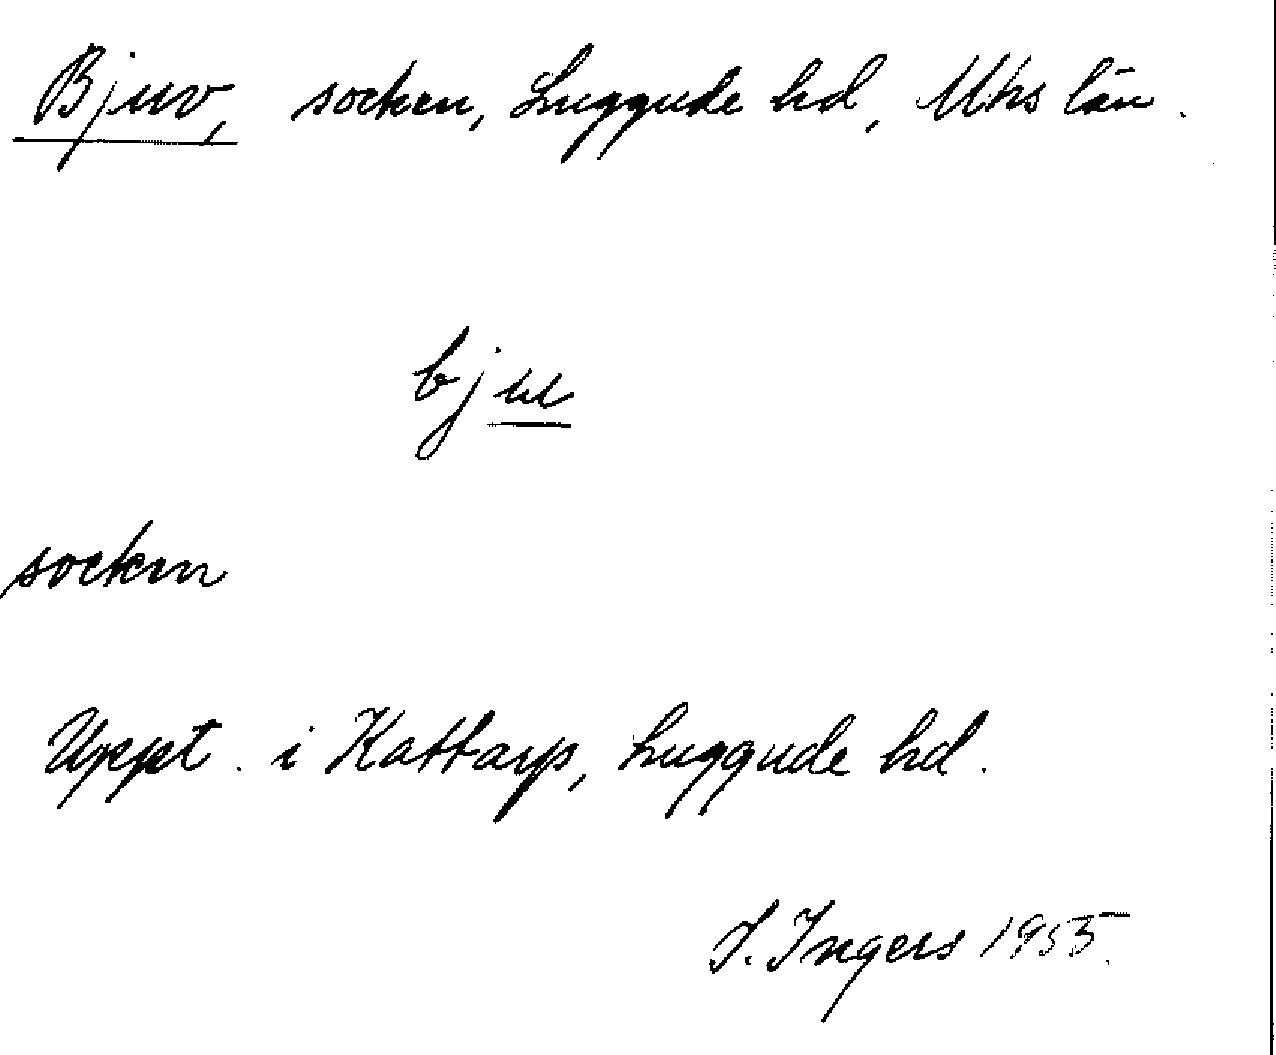 Bjuv, socken, Luggude hd, Mhs län.
bju
socken
Uppt. i Kattarp, Luggude hd.
I. Ingers 1955.